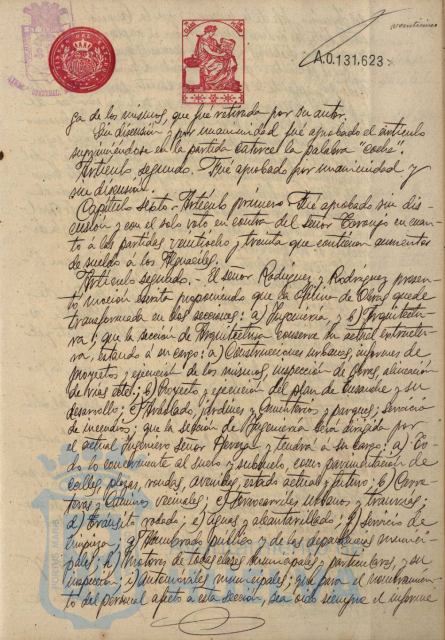 veinticinco
A.0.131,623
ga de los mismos, que fué retirada por su autor.
Sin discusión y por unanimidad fué aprobado el artículo
suprimiéndose en la partida catorce la palabra "coche".
Artículo segundo. Fué aprobado por unanimidad y
sin discusión.
Capítulo sexto.- Artículo primero. Fué aprobado sin dis-
cusión y con el solo voto en contra del Señor Naranjo en cuan-
to á las partidas veintiocho y treinta que contienen aumentos
de sueldo á los Aguaciles.
Artículo segundo.- El señor Rodríguez y Rodríguez presen-
tó moción escrita proponiendo que la Oficina de Obras quede
transformada en dos secciones: a) Ingeniería, y b) Arquitectu-
ra; que la sección de Arquitectura conserve su actual estructu-
ra, estando á su cargo: a) Construcciones urbanas, informes de
Proyectos y ejecución de los mismos, inspección de Obras, alineación
de vías etc; b) Proyecto y ejecución del plan de ensanche y su
desarrollo; c) Traslado, jardines y Cementerios y parques; servicio
de incendios; que la sección de Ingeniería será dirigida por
el actual Ingeniero señor y tendrá á su cargo: a) To-
do lo concerniente al suelo y subsuelo, como pavimentación de
calles, plazas, rondas, avenidas, estado actual y futuro; b) Carre-
teras y Caminos vecinales; c) Ferrocarriles urbanos y tranvías;
d) Tránsito rodado; e) Aguas y alcantarillado; f) Servicio de
limpieza; g) Alumbrado público y de las dependencias munici-
pales; h) Motores de todas clases municipales y particulares, y su
inspección; i) Automóviles municipales; que para el nombramien-
to del personal afecto á esta sección, sea oído siempre el informe